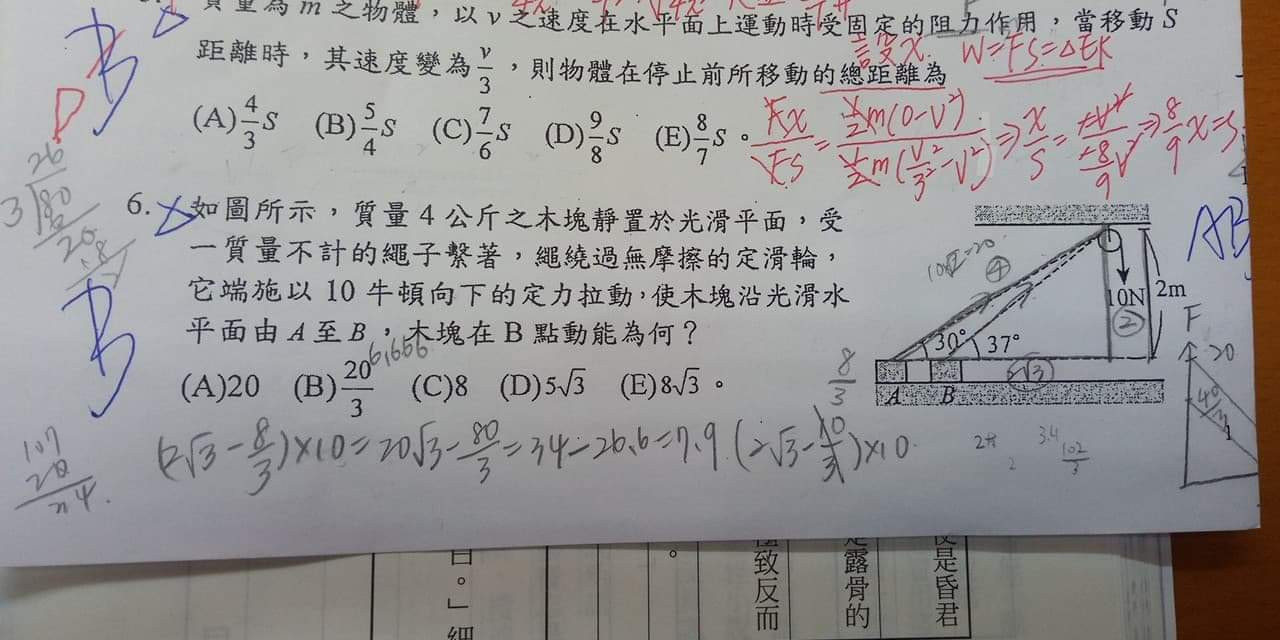 質量為 m 之物體，以 v 之速度在水平面上運動時受固定的阻力作用，當移動 S
距離時，其速度變為 v/3，則物體在停止前所移動的總距離為
設x. W=FS=ΔEK
(A) 4/3 S (B) 5/4 S (C) 7/6 S (D) 9/8 S (E) 8/7 S。
Fx/FS = ½m(0-V²)/½m(V²/3²-V²) ⇒ x/S = -V²/(-8/9 V²) ⇒ 8/9 x=S
6. 如圖所示，質量 4 公斤之木塊靜置於光滑平面，受
一質量不計的繩子繫著，繩繞過無摩擦的定滑輪，
它端施以 10 牛頓向下的定力拉動，使木塊沿光滑水
平面由 A 至 B，木塊在 B 點動能為何？
(A)20 (B) 20/3 (C)8 (D)5√3 (E)8√3。
6.666
10N
2m
30°
37°
A B
④
②
F
20
8/3
(2√3-8/3)×10=20√3-80/3=34-26.6=7.9. (2√3-10/3)×10
3.4
102/3
26
3 80
20
B
B
AB
107
28
自。」細
。
極致反而
是露骨的
是昏君